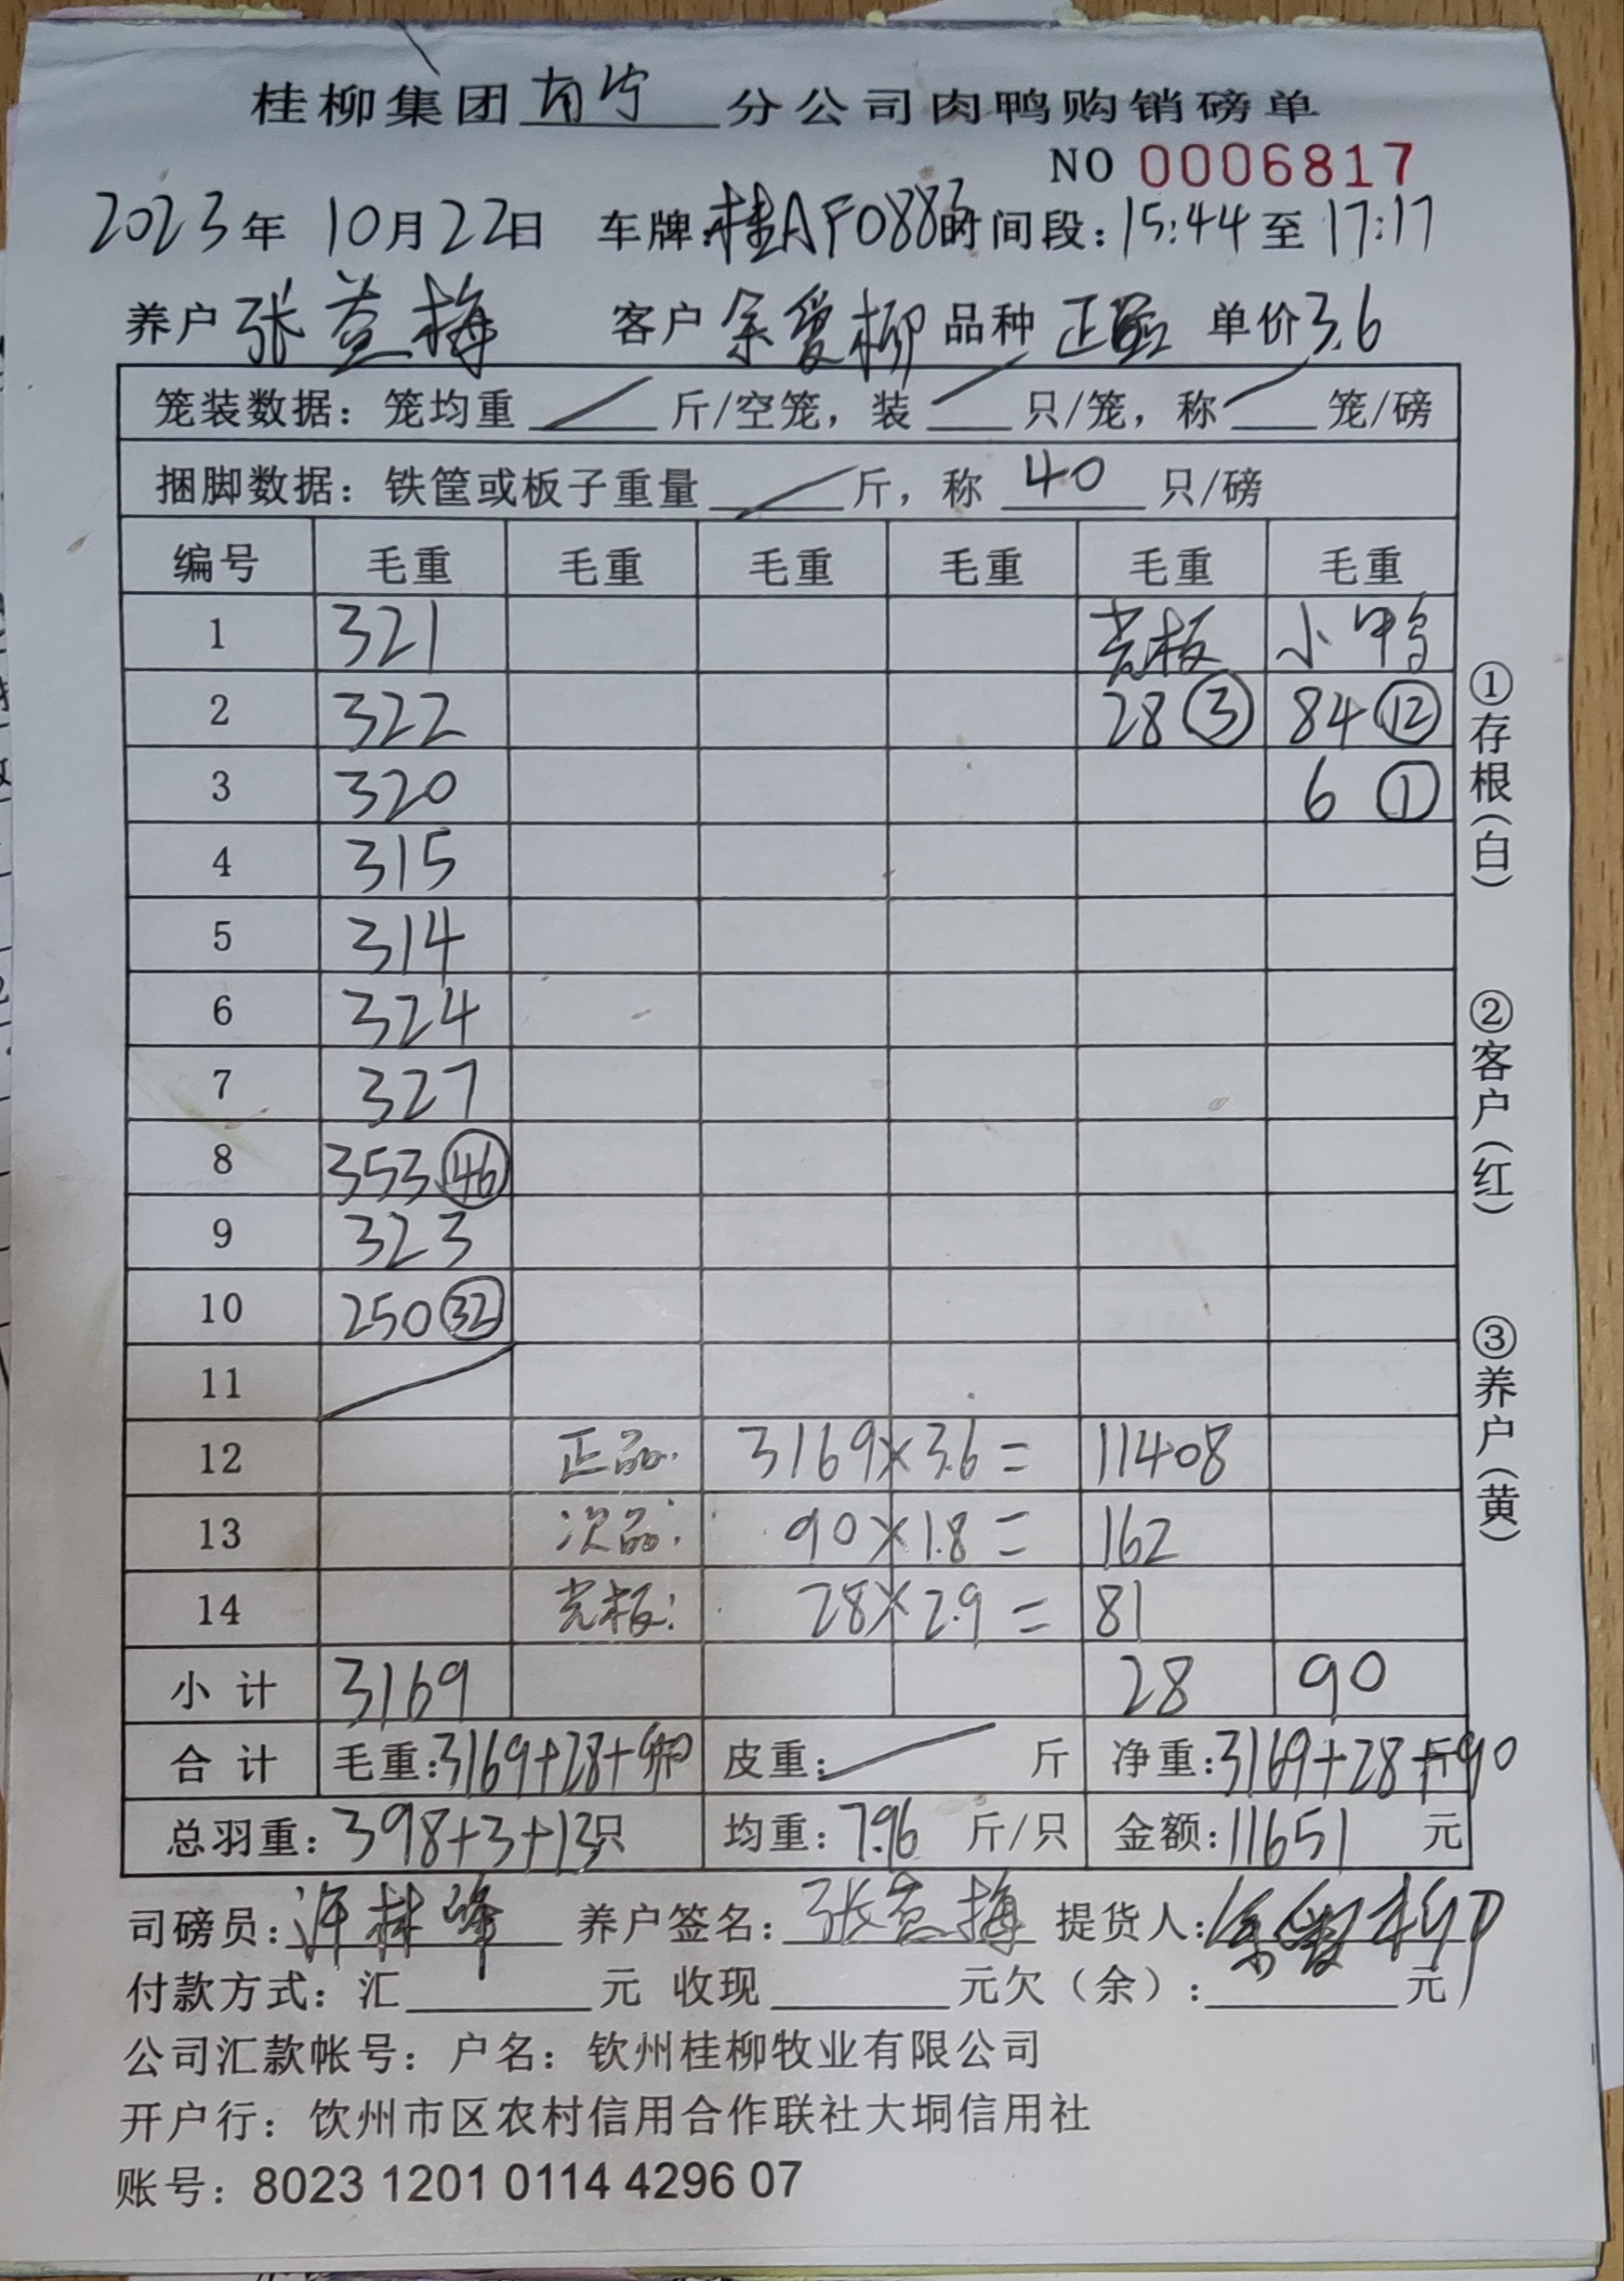 桂柳集团南宁分公司肉鸭购销磅单
NO 0006817
2023年 10月22日 车牌:桂AF0883时间段:15:44至17:17
养户 张 梅 客户 余爱柳 品种 正品 单价3.6
笼装数据: 笼均重 斤/空笼, 装 只/笼, 称 笼/磅
捆脚数据: 铁筐或板子重量 斤, 称 40 只/磅
编号 毛重 毛重 毛重 毛重 毛重 毛重
1 321 光板 小鸭
2 322 28 ③ 84 ⑫
3 320 6 ①
4 315
5 314
6 324
7 327
8 353 ㊻
9 323
10 250 ㉜
11
12 正品: 3169×3.6= 11408
13 次品: 90×1.8= 162
14 光板: 28×2.9= 81
小计 3169 28 90
合计 毛重:3169+28+90 皮重: 斤 净重:3169+28+90斤
总羽重: 398+3+13只 均重: 7.96 斤/只 金额:11651 元
司磅员: 许林峰 养户签名: 张 梅 提货人: 余爱柳
付款方式: 汇 元 收现 元欠(余): 元
公司汇款帐号: 户名: 钦州桂柳牧业有限公司
开户行: 饮州市区农村信用合作联社大垌信用社
账号: 8023 1201 0114 4296 07
①存根(白)
②客户(红)
③养户(黄)